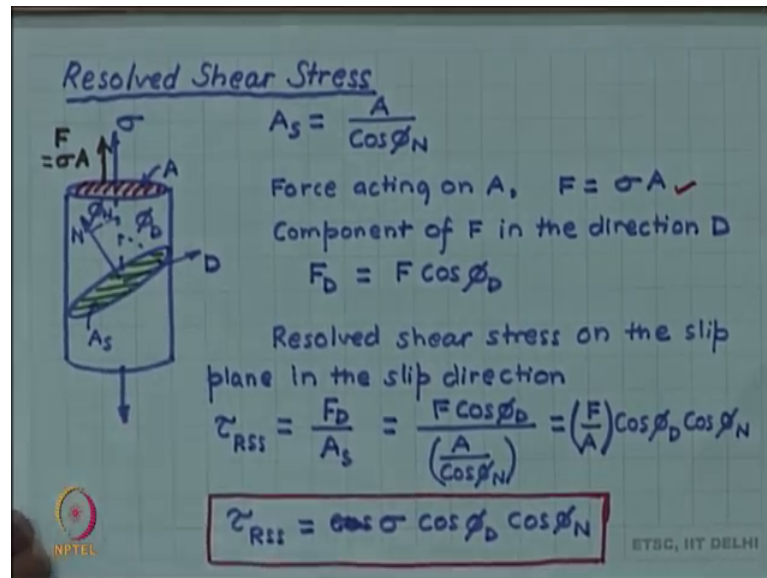 Resolved Shear Stress
F
= σA
σ
A
N
φ_N
φ_D
D
A_S
A_S = A / Cos φ_N
Force acting on A, F = σ A ✓
Component of F in the direction D
F_D = F Cos φ_D
Resolved shear stress on the slip
plane in the slip direction
τ_RSS = F_D / A_S = F Cos φ_D / (A / Cos φ_N) = (F/A) Cos φ_D Cos φ_N
τ_RSS = σ Cos φ_D Cos φ_N
NPTEL
ETSC, IIT DELHI